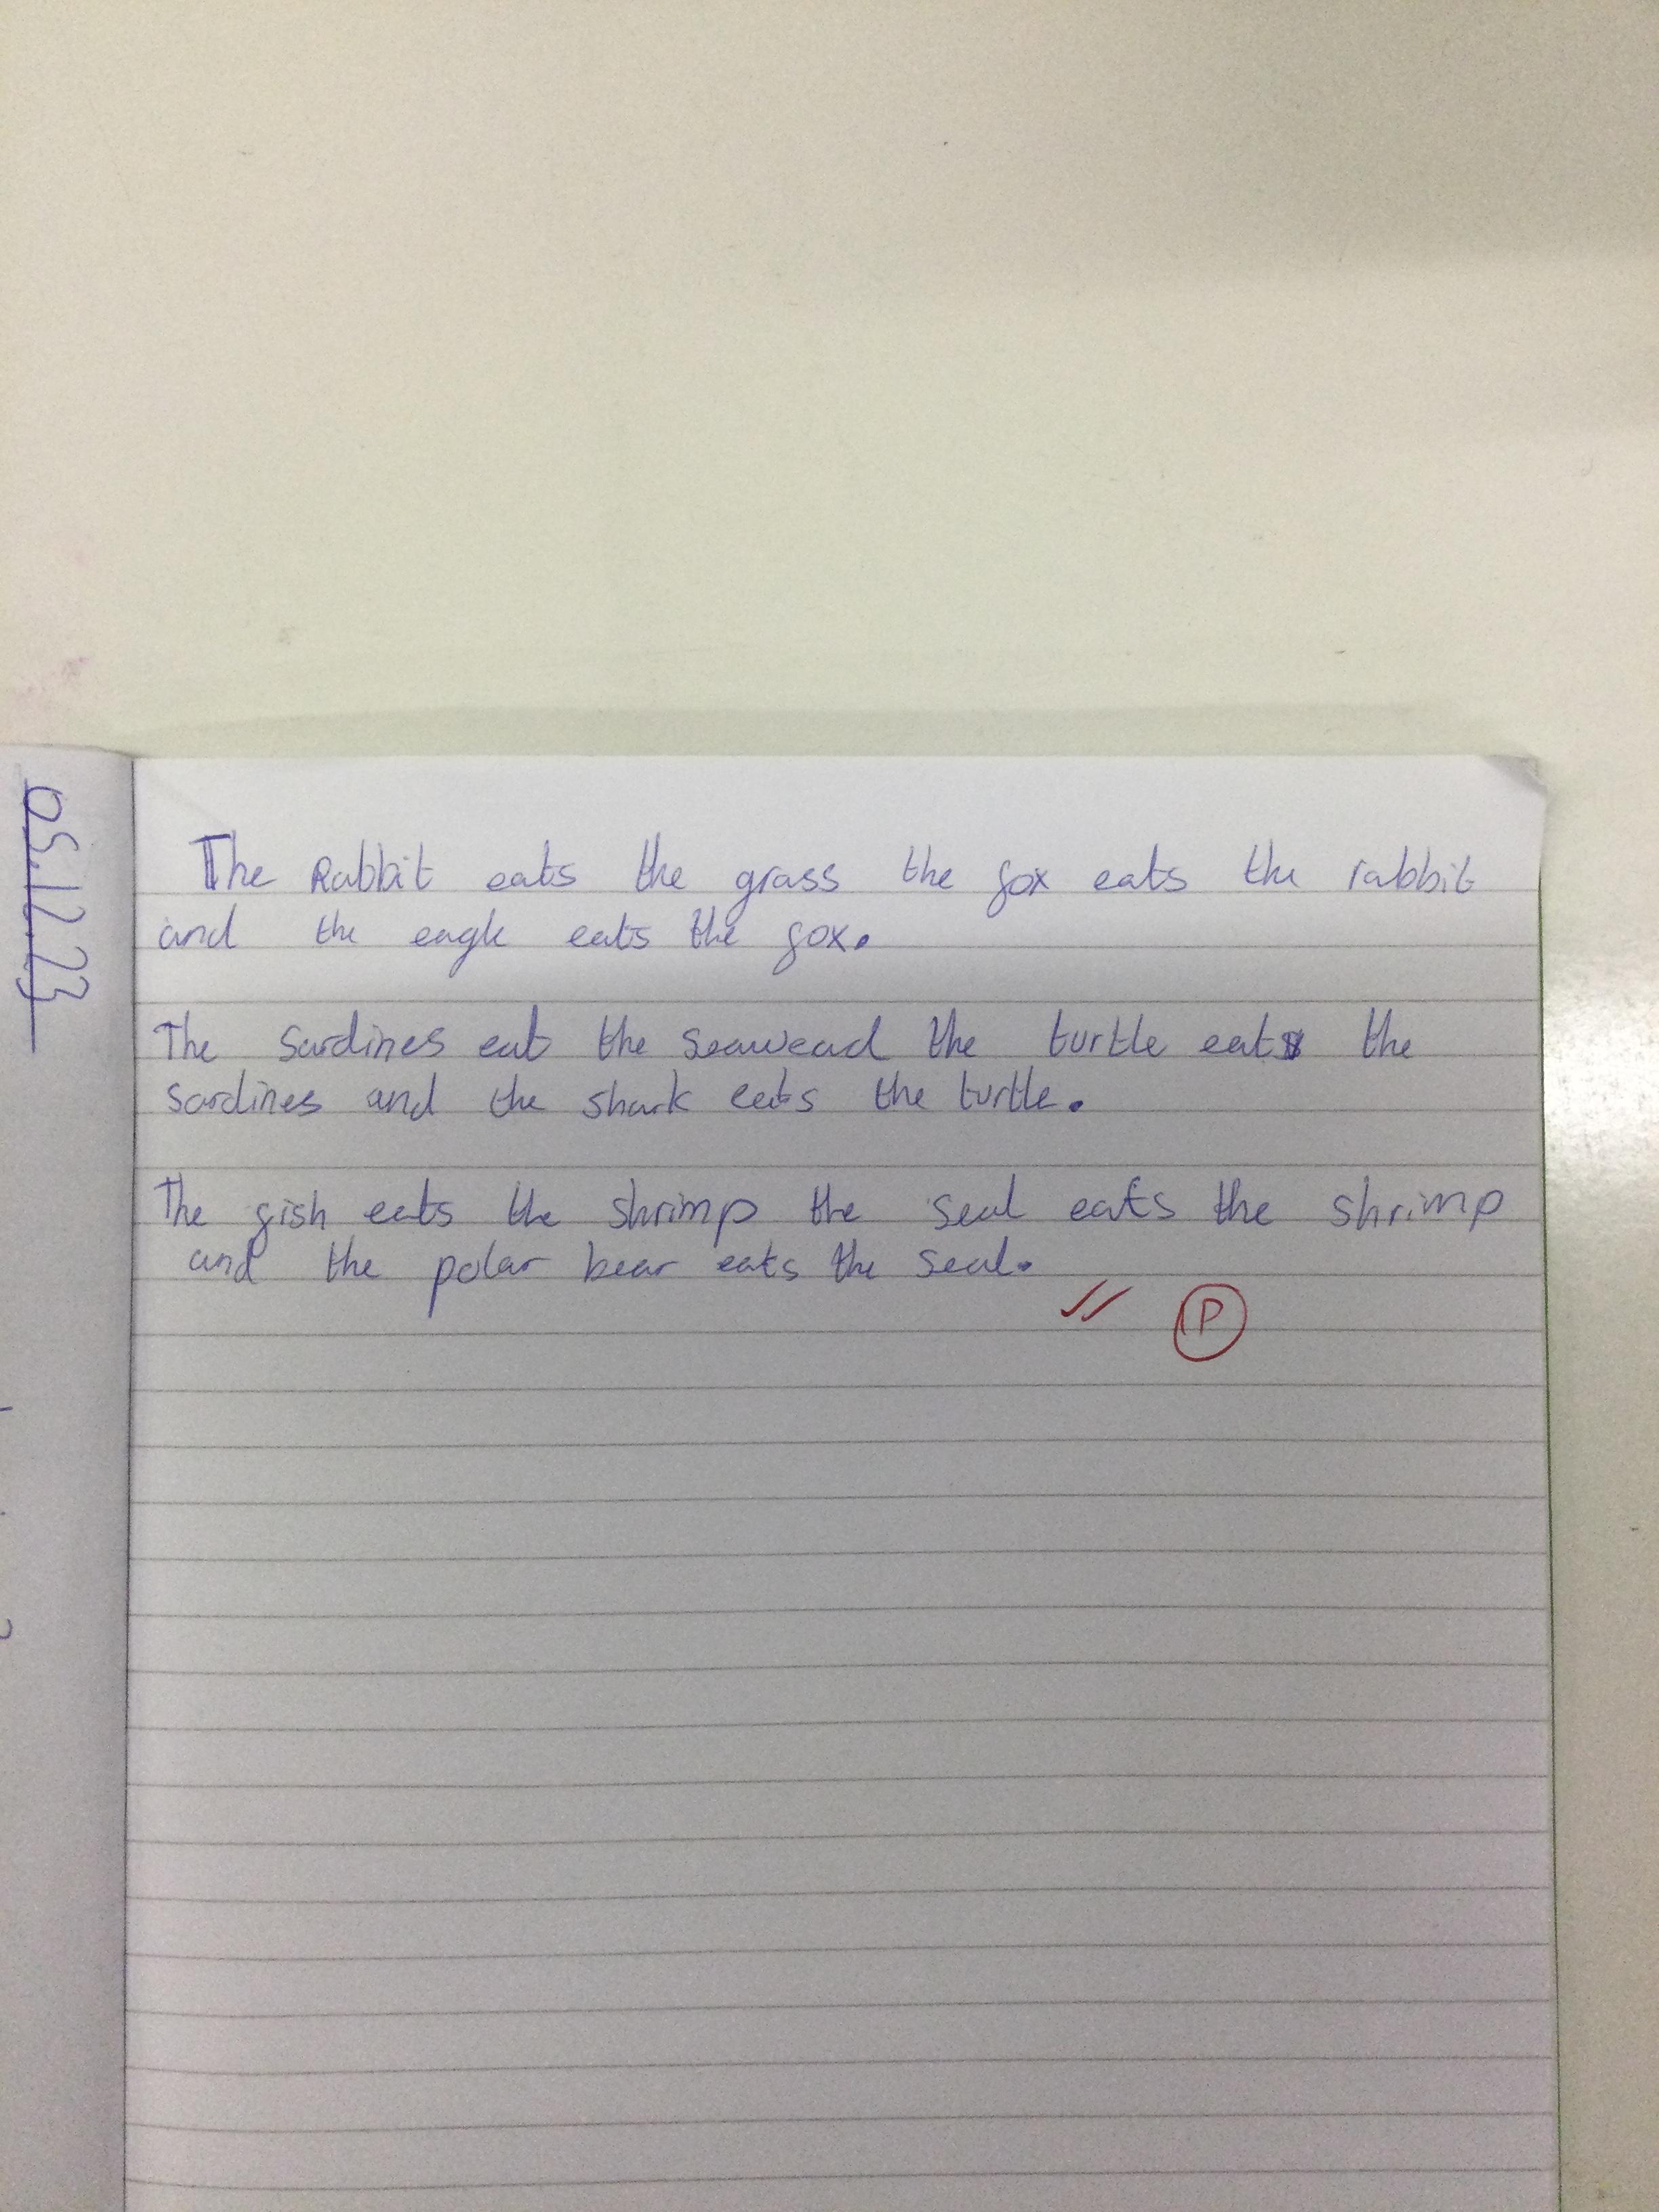 05.12.23
The Rabbit eats the grass the fox eats the rabbit
and the eagle eats the fox.
The Sardines eat the seawead the turtle eats the
sardines and the shark eats the turtle.
The fish eats the shrimp the seal eats the shrimp
and the polar bear eats the seal.
P